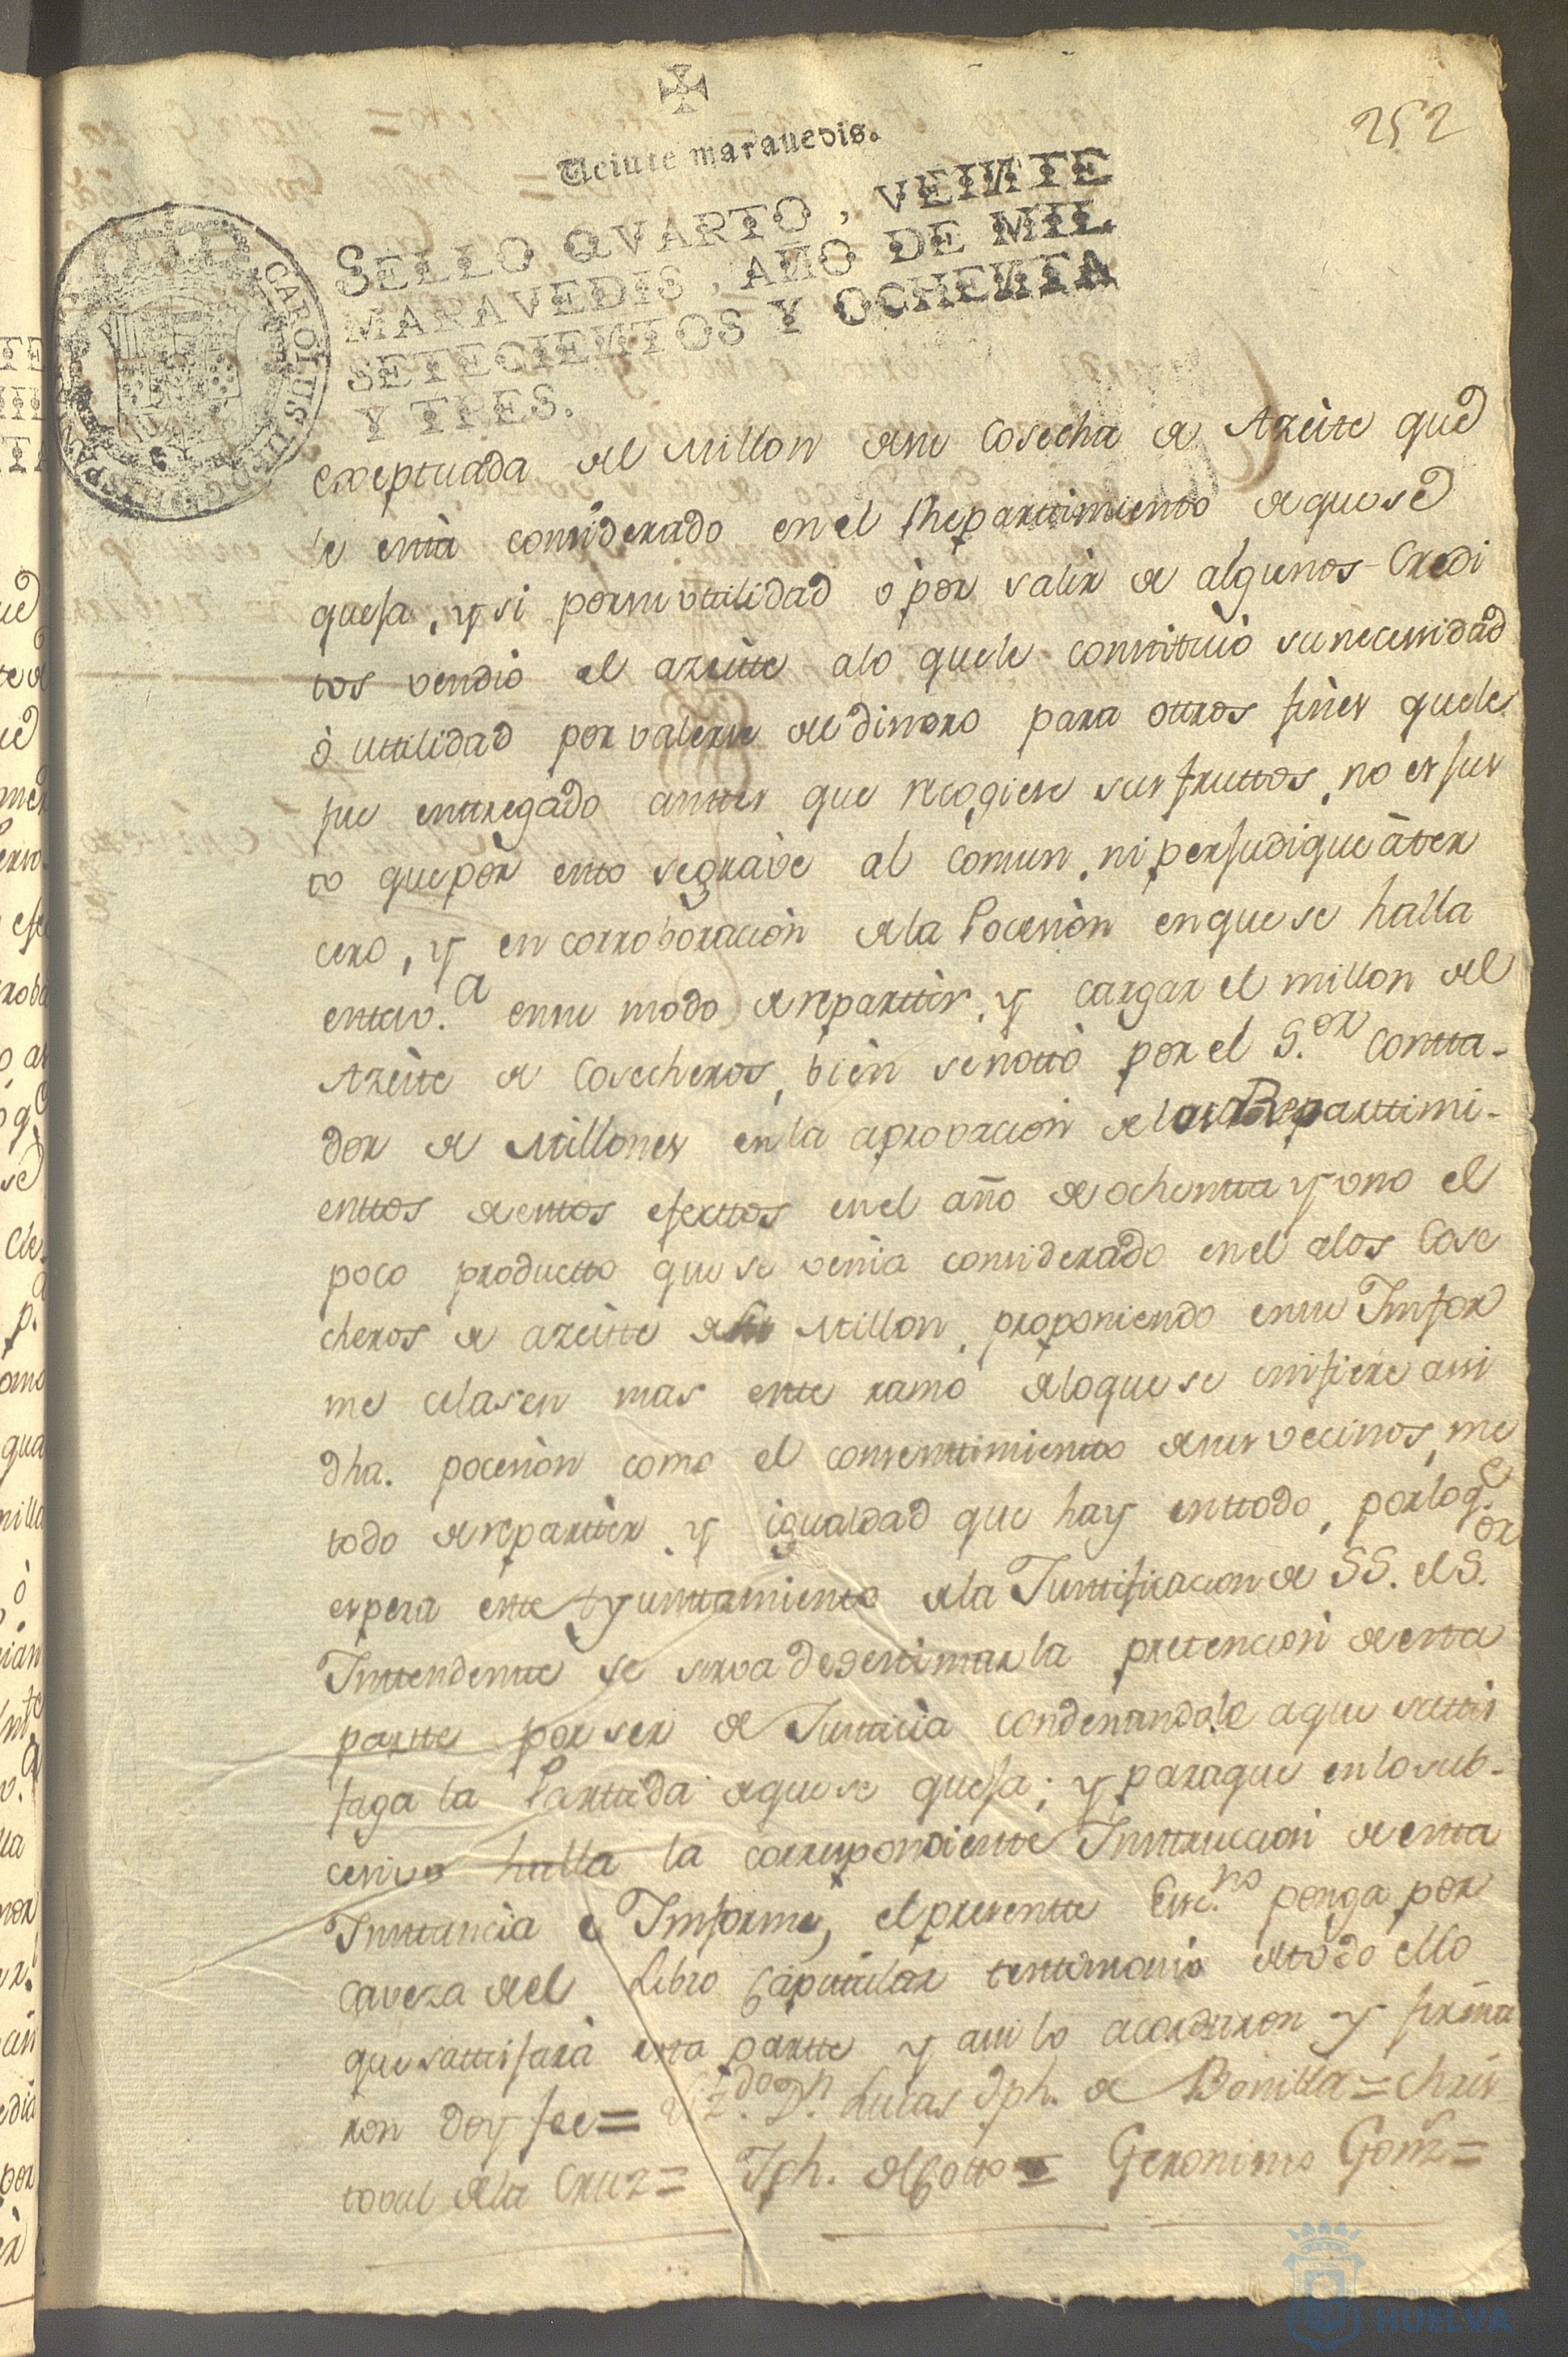 252
Veinte maravedis.
SELLO QVARTO, VEINTE
MARAVEDIS, AÑO DE MIL
SETECIENTOS Y OCHENTA
Y TRES.
CAROLUS III D G HISP
exeptuada del Millon de su Cosecha de Azeite que
le està considerado en el Repartimiento de que se
quefa, y si por su uttilidad o por salir de algunos Credi
tos vendiò el azeitte a lo que le constituiò su necessidad
ò uttilidad por valerse del dinero para ottros fines que le
fue enttregado anttes que recogiese sus fruttos, no es jus
to que por esto se grave al comun, ni perjudique à ter
cero, y en corroboraciòn de la Poceciòn en que se halla
esta v.ª en su modo de reparttir, y cargar el millon del
Azeite de Cosecheros, bien se nottò por el S.or Contta-
dor de Millones en la aprovacion de los Reparttimi-
enttos de estos efecttos en el año de ochentta y uno el
poco productto que se venia considerado en el a los Cose
cheros de azeitte de su Millon, proponiendo en su Infor
me celasen mas este ramo de lo que se infiere assi
dha. poceciòn como el consenttimiento de sus vecinos, me
todo de reparttir, y igualdad que hay en ttodo, por lo q.e
espera este Ayunttamiento de la Justtificacion de SS. el S.or
Inttendente se sirva desestimar la pretencion de esta
partte por ser de Justticia condenandole a que sattis
faga la Parttida de que se quefa; y para que en lo sub-
cesivo halla la correspondiente Insttruccion de esta
Insttancia e Informe, el presentte Ess.no ponga por
caveza del Libro Capittular testtimonio de todo ello
que sattisfarà esta partte y assi lo acordaron y firma
ron doy fee = Liz.do D.n Lucas Jph. de Bonilla = Chris
toval de la Cruz = Jph. del Cotto = Geronimo Gomz =
Ayuntamiento
HUELVA